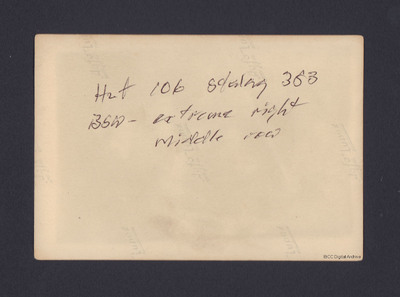 Hut 106 Stalag 383
BSW - extreme right
middle row
IBCC Digital Archive